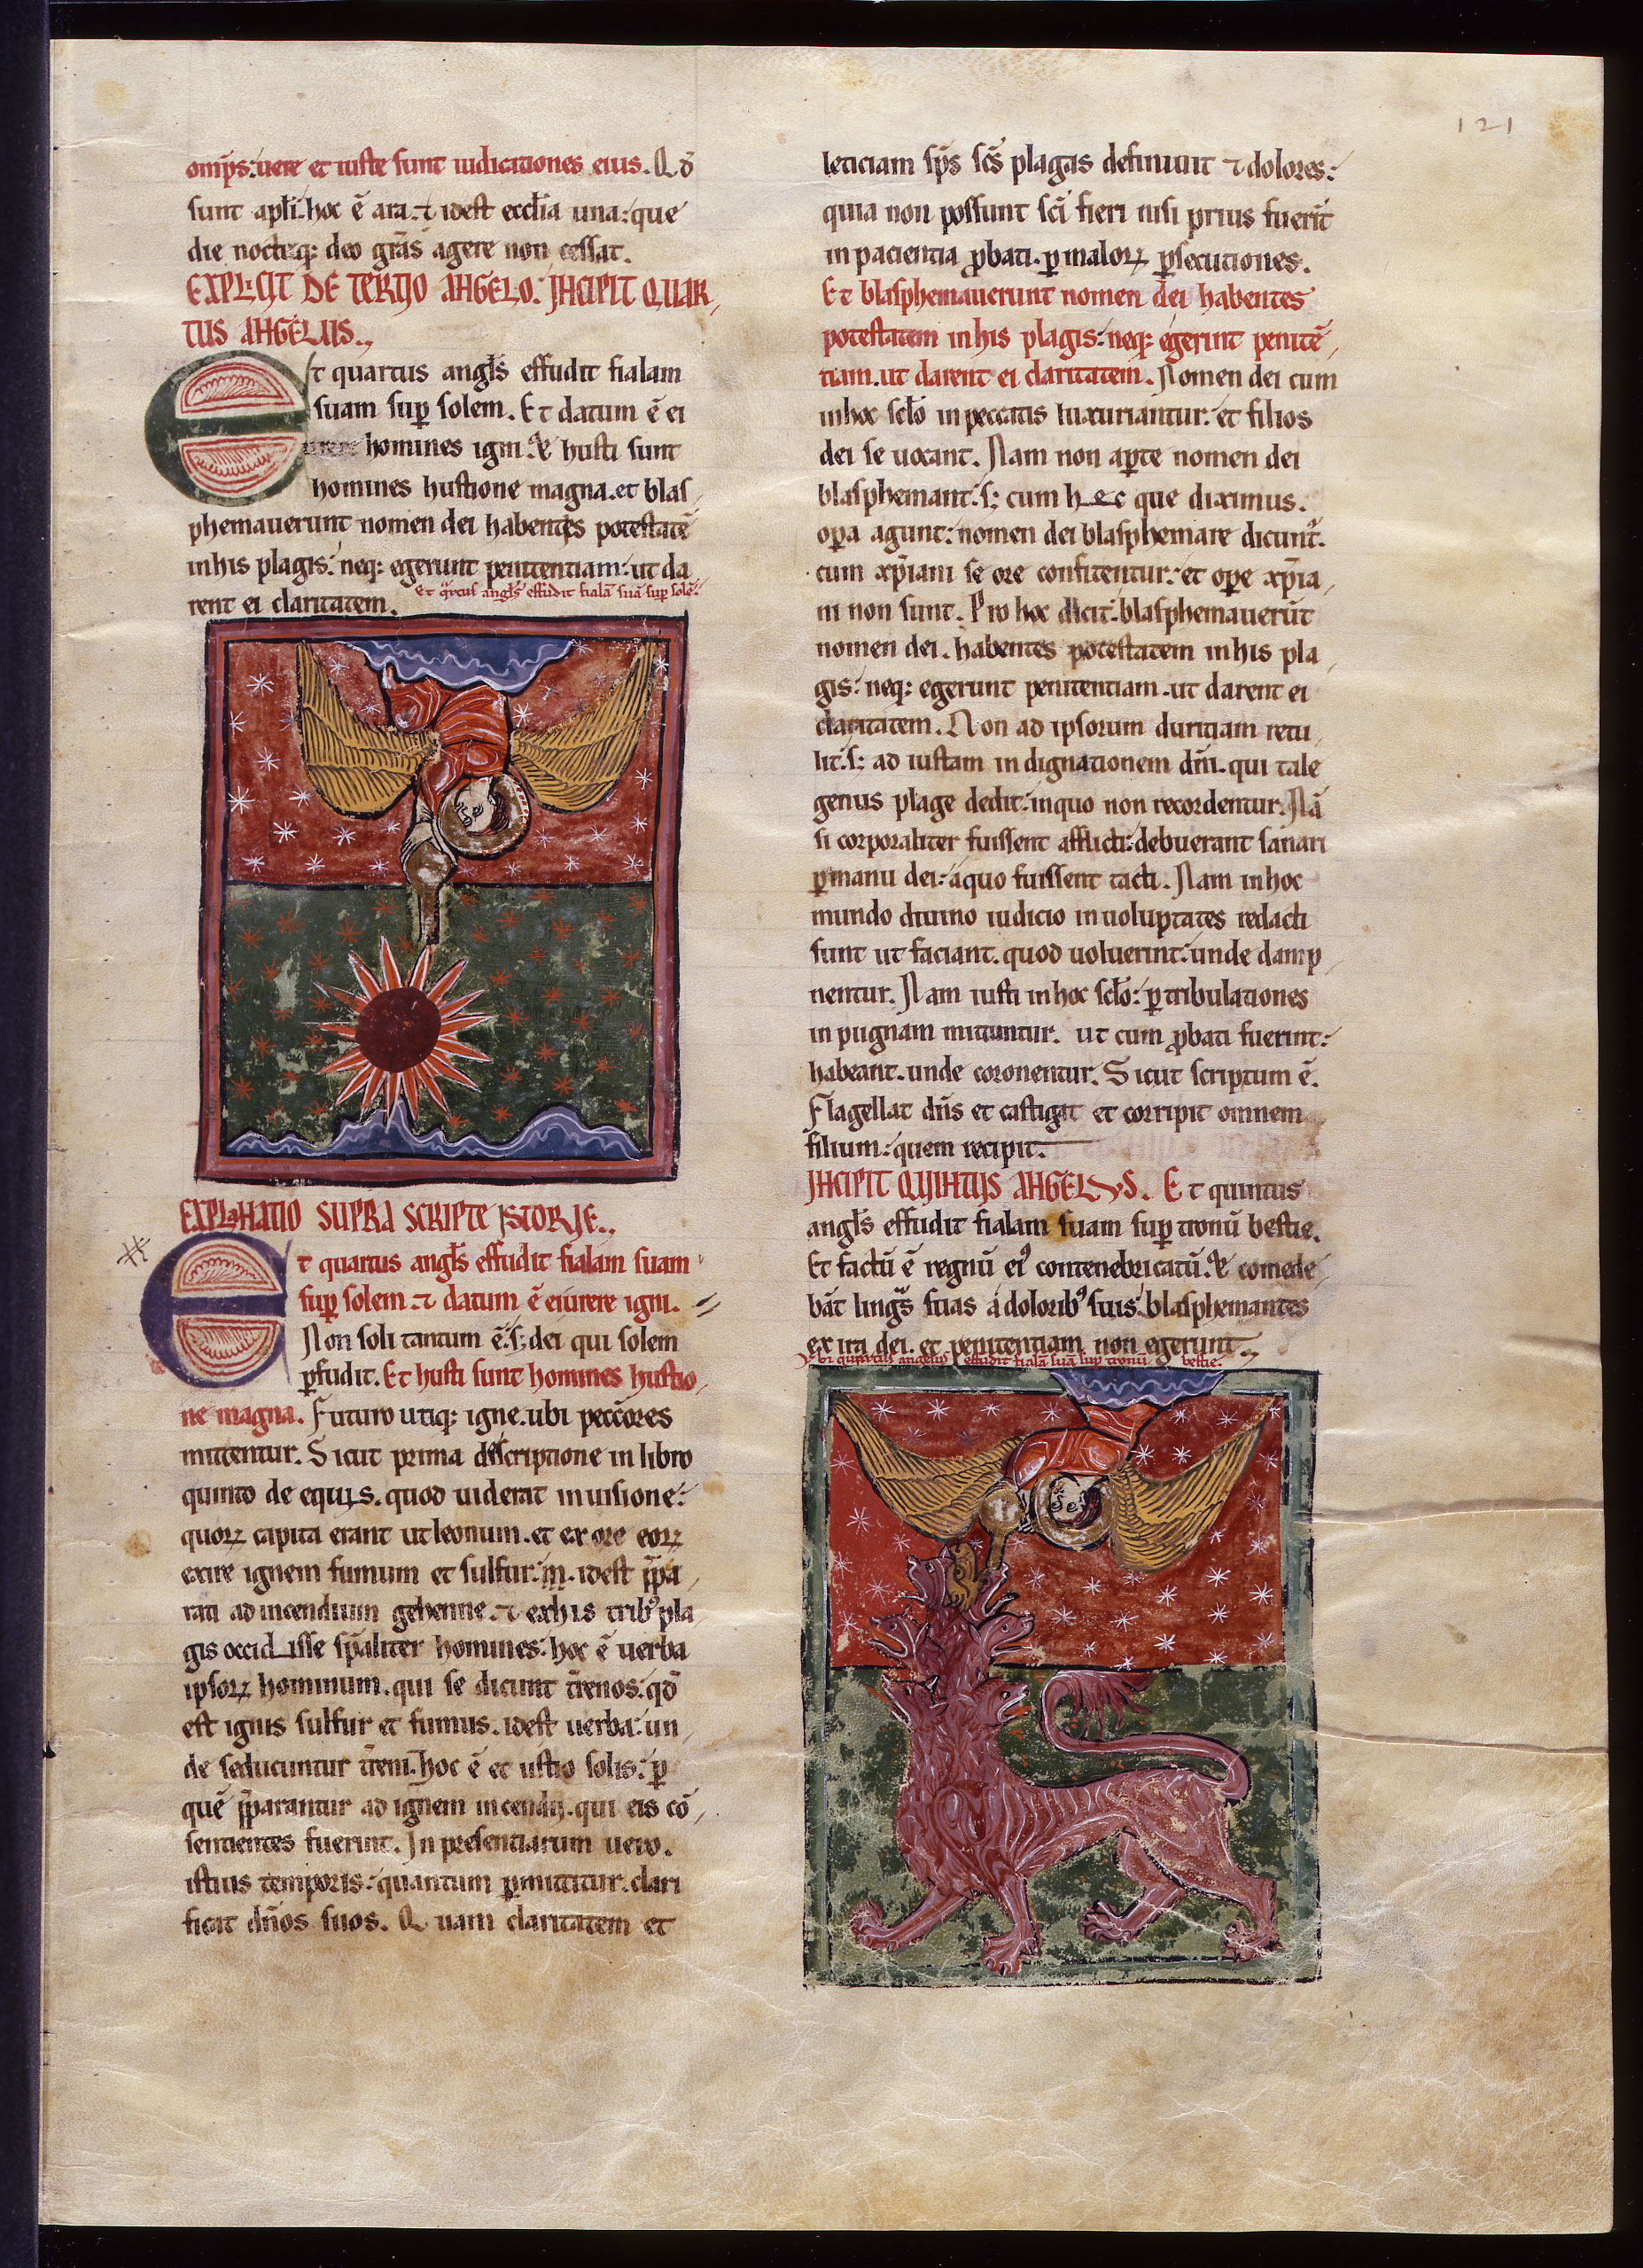 121
omp̄s: uere et iuste sunt iudicationes eius. Qd̄
sunt apl̄i. hoc ē ara. ⁊ idest eccl̄ia una: que
die noctuq; deo grās agere non cessat.
EXPLICIT DE TERTIO ANGELO. INCIPIT QUAR
TUS ANGELUS.
Et quartus angl̄s effudit fialam
suam sup̱ solem. Et datum ē ei
urere homines igni. & husti sunt
homines hustione magna. et blas
phemauerunt nomen dei habentes potestatē
inhis plagis: neq; egerunt penitentiam: ut da
rent ei claritatem.
Et qrtus angl̄s effudit fialā suā sup̱ solē.
EXPLANATIO SUPRA SCRIPTE ISTORIE.
Et quartus angl̄s effudit fialam suam
sup̱ solem. ⁊ datum ē ei urere igni.
Non soli tantum ē. s; dei qui solem
p̱fudit. Et husti sunt homines hustio
ne magna. Futuro utiq; igne. ubi peccōres
mittentur. Sicut prima descriptione in libro
quinto de equis. quod uiderat in uisione:
quorꝝ capita erant ut leonum. et ex ore eorꝝ
exire ignem fumum et sulfur: idest p̄pa
rati ad incendium gehenne. ⁊ exhis tribꝰ pla
gis occidisse sp̄aliter homines: hoc ē uerba
ipsorꝝ hominum. qui se dicunt t̄renos. qd̄
est ignis sulfur et fumus. idest uerba: un
de seducuntur t̄reni. hoc ē et ustio solis: p̱
quē p̄parantur ad ignem incendij. qui eis cō
sentientes fuerint. In presentiarum uero.
istius temporis: quantum p̱mittitur. clari
ficat dn̄os suos. Quam claritatem et
leticiam sp̄s sc̄s plagas definiuit ⁊ dolores:
quia non possunt sc̄i fieri nisi prius fuerīt
in pacientia ꝓbati. p̱ malorꝝ p̱secutiones.
Et blasphemauerunt nomen dei habentes
potestatem inhis plagis: neq; egerint penitē
tiam. ut darent ei claritatem. Nomen dei cum
inhoc scl̄o in peccatis luxuriantur. et filios
dei se uocant. Nam non ap̱te nomen dei
blasphemant: s; cum hec que diximus.
op̱a agunt: nomen dei blasphemare dicunt̉.
cum xp̄iani se ore confitentur: et op̱e xp̄ia
ni non sunt. Pro hoc dicit: blasphemauerūt
nomen dei. habentes potestatem inhis pla
gis: neq; egerunt penitentiam. ut darent ei
claritatem. Non ad ipsorum duritiam retu
lit. s; ad iustam indignationem dn̄i. qui tale
genus plage dedit: inquo non recordentur. Nā
si corporaliter fuissent afflicti: debuerant sanari
p̱ manu dei: a quo fuissent tacti. Nam in hoc
mundo diuino iudicio in uoluptates redacti
sunt ut faciant. quod uoluerint: unde damp
nentur. Nam iusti inhoc scl̄o: p̱ tribulationes
in pugnam mittuntur. ut cum ꝓbati fuerint:
habeant. unde coronentur. Sicut scriptum ē.
Flagellat dn̄s et castigat et corripit omnem
filium: quem recipit.
INCIPIT QUINTUS ANGELUS. Et quintus
angl̄s effudit fialam suam sup̱ tronū bestie.
Et factū ē regnū eiꝰ contenebricatū. & comede
bāt lingᵃs suas a doloribꝰ suis: blasphemantes
ex ira dei. et penitentiam non egerunt.
Ubi quintus angelus effudit fialā suā sup̱ tronū bestie.